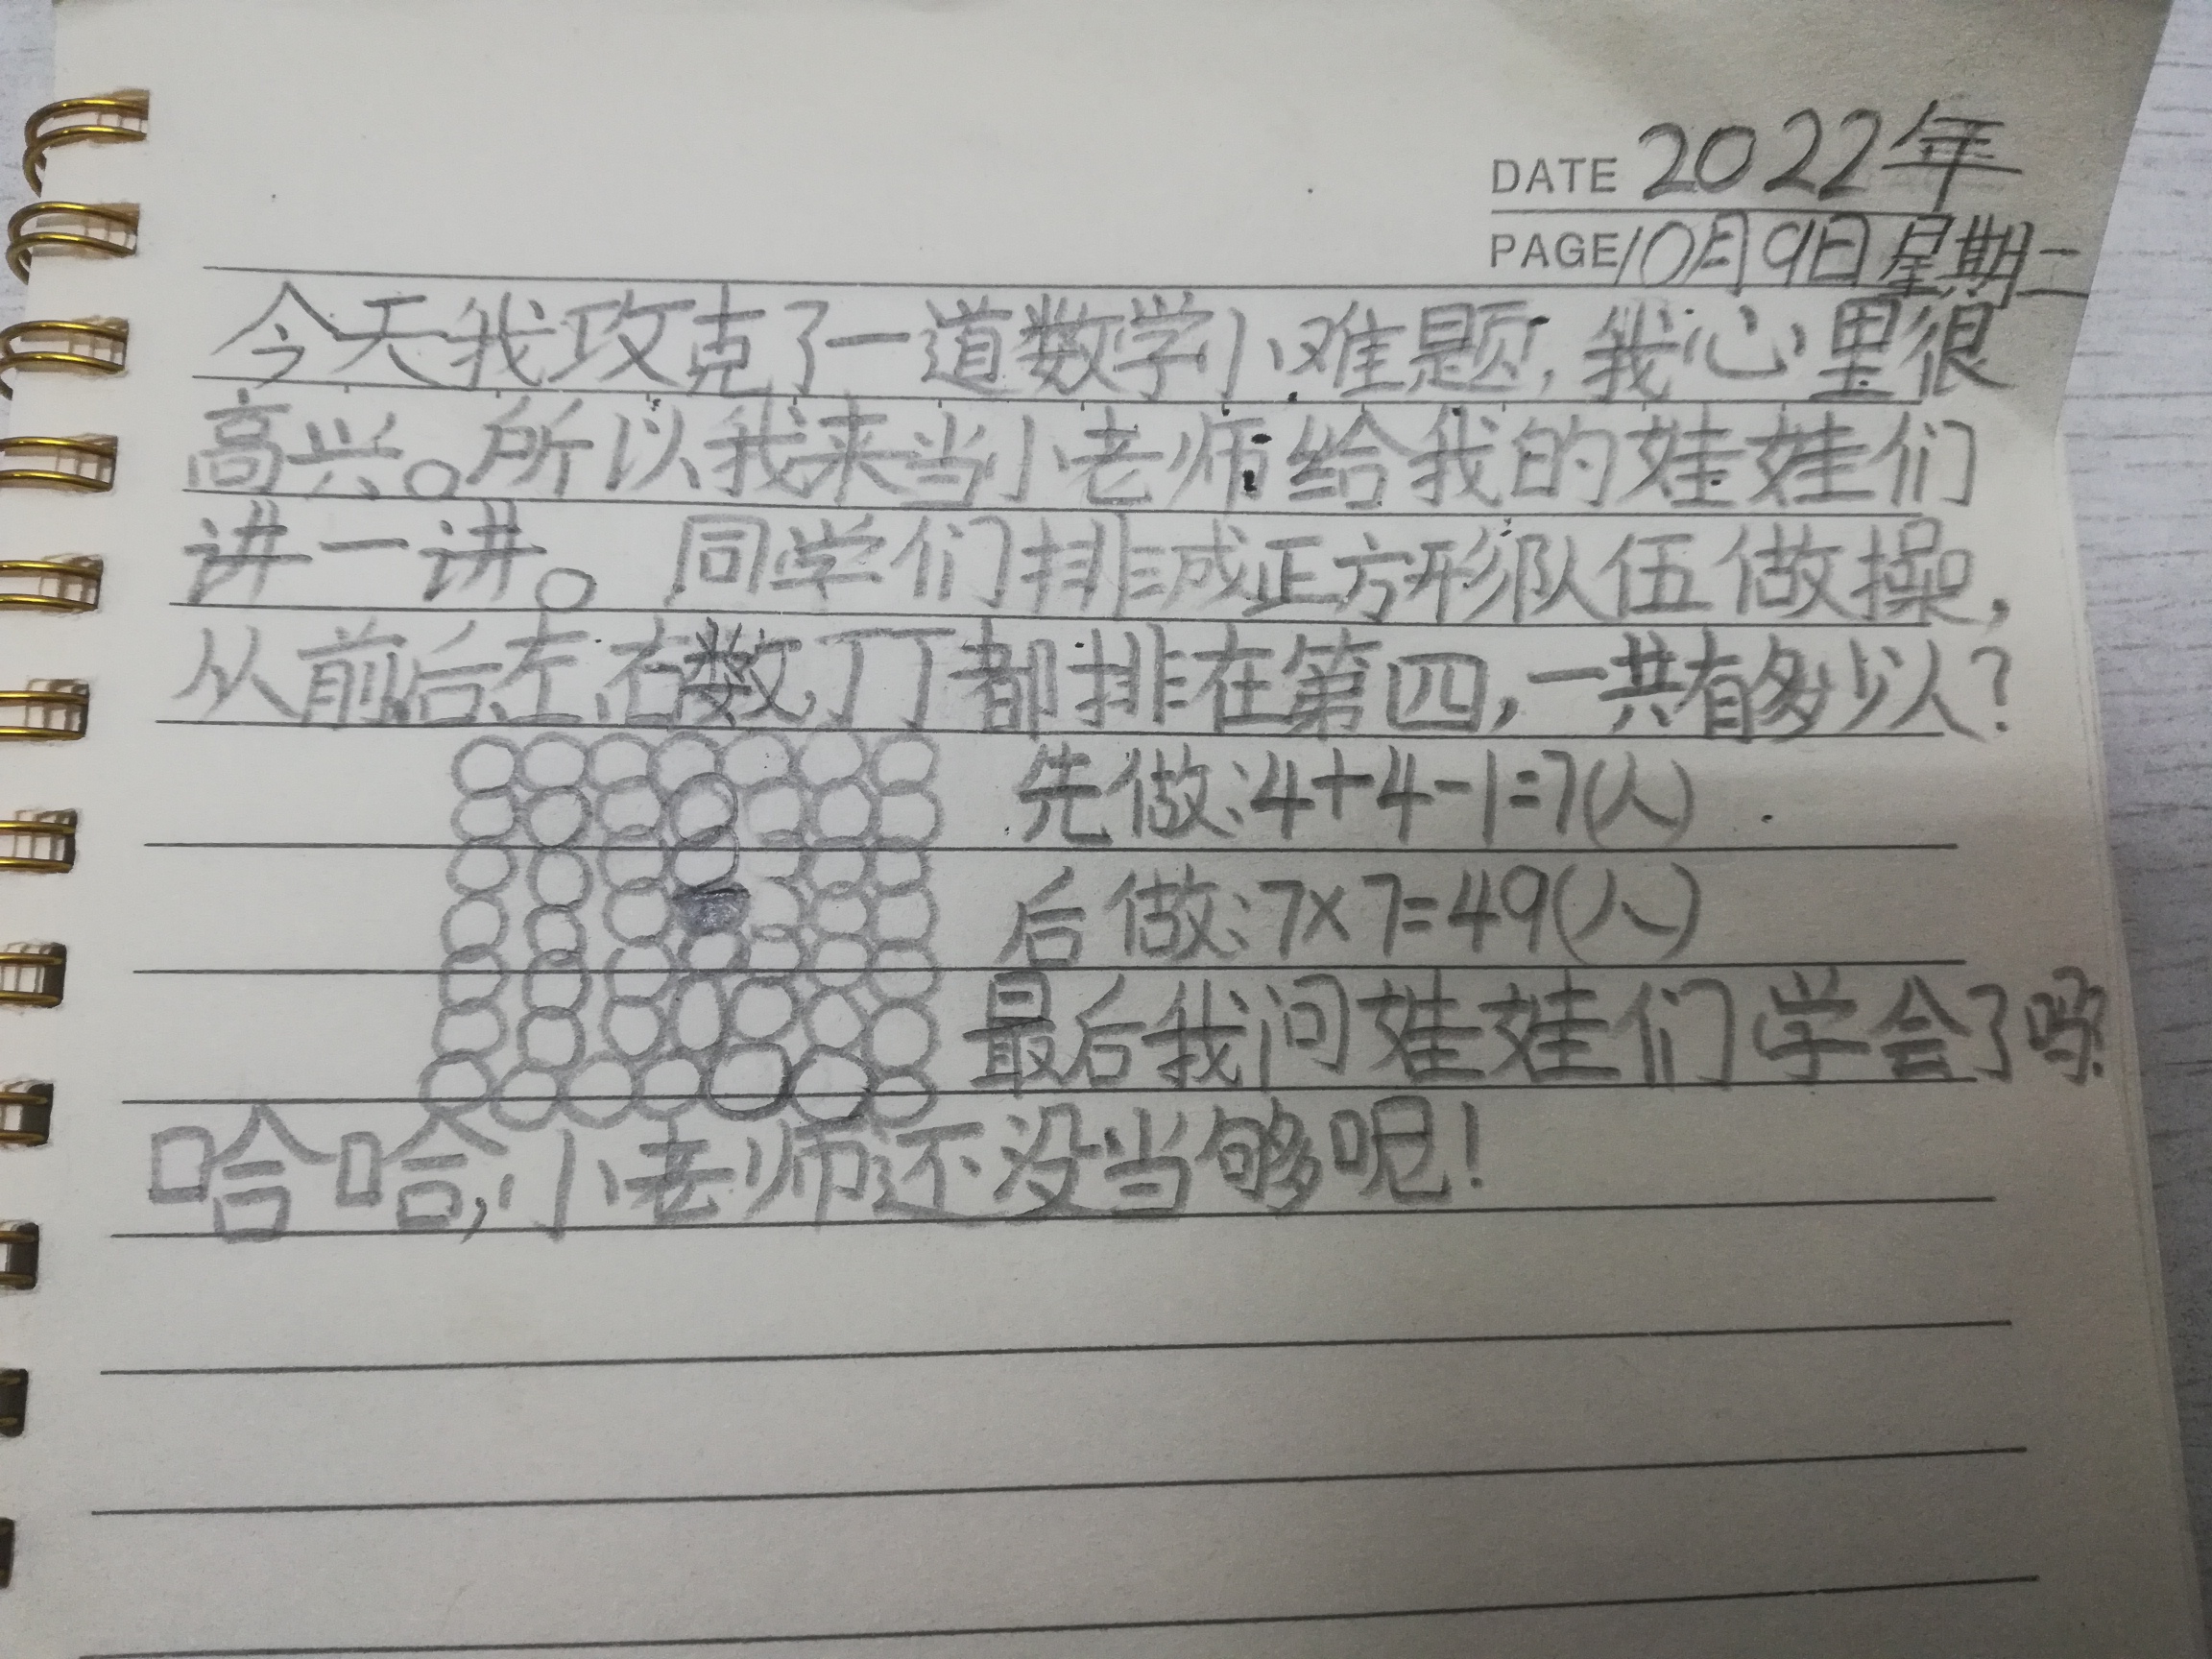 DATE 2022年
PAGE 10月9日星期二
今天我攻克了一道数学小难题,我心里很
高兴。所以我来当小老师给我的娃娃们
讲一讲。同学们排成正方形队伍做操,
从前后左右数,丁丁都排在第四,一共有多少人?
先做:4+4-1=7(人)
后做:7×7=49(人)
最后我问娃娃们学会了吗?
哈哈,小老师还没当够呢!